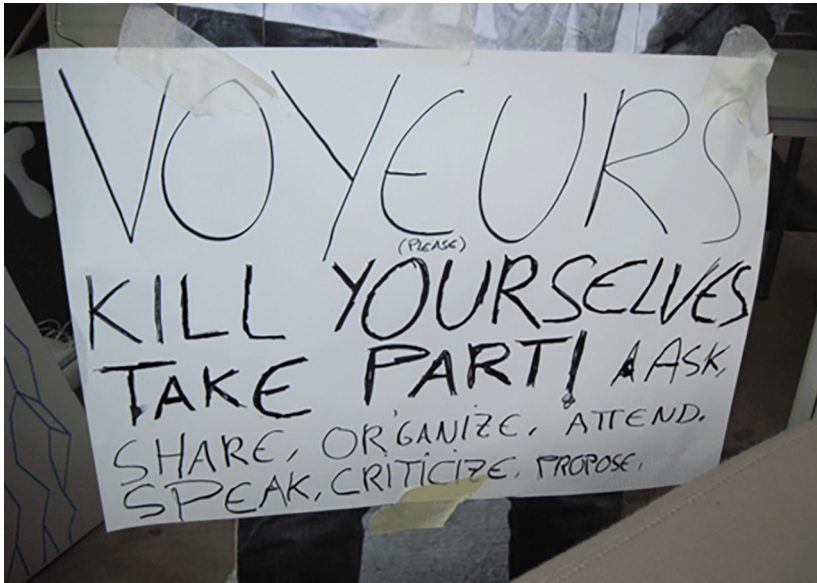 VOYEURS
(PLEASE)
KILL YOURSELVES
TAKE PART! ASK,
SHARE, ORGANIZE, ATTEND.
SPEAK, CRITICIZE, PROPOSE.